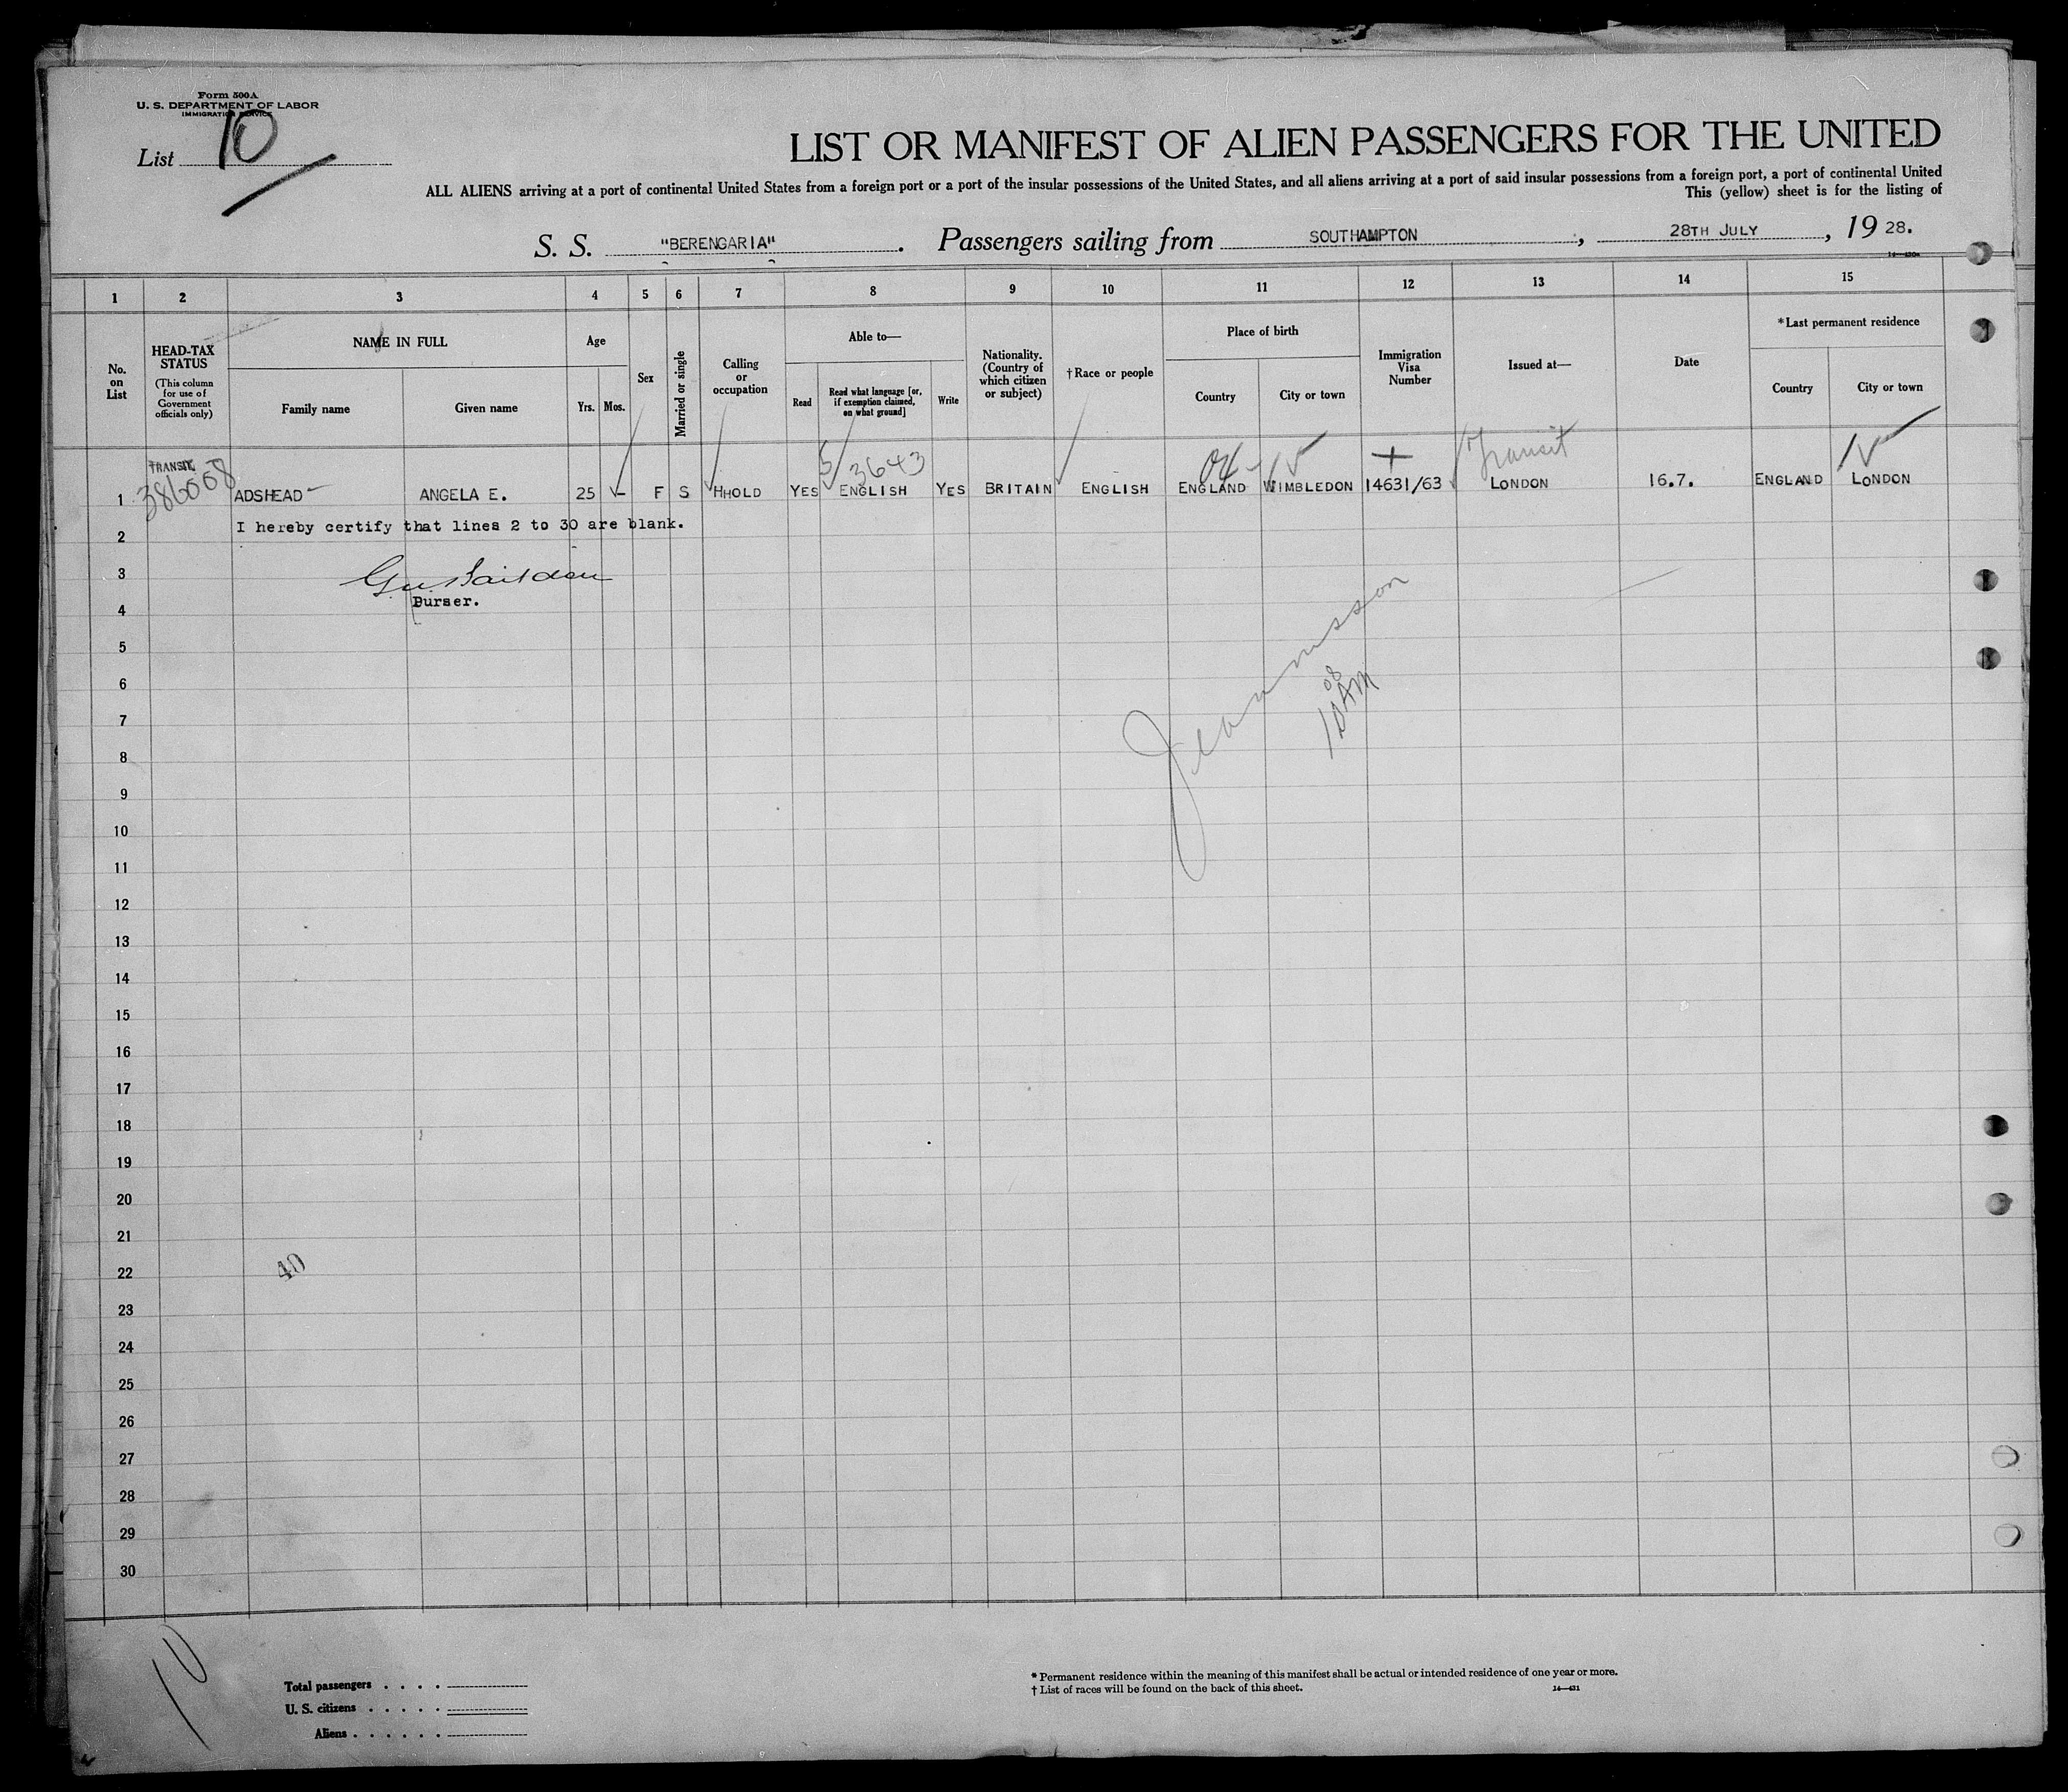 Form 500A
U. S. DEPARTMENT OF LABOR
IMMIGRATION SERVICE
List 10
LIST OR MANIFEST OF ALIEN PASSENGERS FOR THE UNITED
ALL ALIENS arriving at a port of continental United States from a foreign port or a port of the insular possessions of the United States, and all aliens arriving at a port of said insular possessions from a foreign port, a port of continental United
This (yellow) sheet is for the listing of
S. S. "BERENGARIA". Passengers sailing from SOUTHAMPTON, 28TH JULY, 19 28.
1 2 3 4 5 6 7 8 9 10 11 12 13 14 15
No. on List
HEAD-TAX STATUS
(This column for use of Government officials only)
NAME IN FULL
Family name
Given name
Age
Yrs. Mos.
Sex
Married or single
Calling or occupation
Able to—
Read
Read what language [or, if exemption claimed, on what ground]
Write
Nationality. (Country of which citizen or subject)
†Race or people
Place of birth
Country
City or town
Immigration Visa Number
Issued at—
Date
*Last permanent residence
Country
City or town
TRANSIT
3643
Transit
1 ADSHEAD ANGELA E. 25 - F S HHOLD YES ENGLISH YES BRITAIN ENGLISH ENGLAND WIMBLEDON 14631/63 LONDON 16.7. ENGLAND LONDON
I hereby certify that lines 2 to 30 are blank.
2
3
Purser.
4
5
6
10 AM
7
8
9
10
11
12
13
14
15
16
17
18
19
20
21
22
40
23
24
25
26
27
28
29
30
10
Total passengers . . . .
U. S. citizens . . . . .
Aliens . . . . . .
* Permanent residence within the meaning of this manifest shall be actual or intended residence of one year or more.
† List of races will be found on the back of this sheet.
14—431